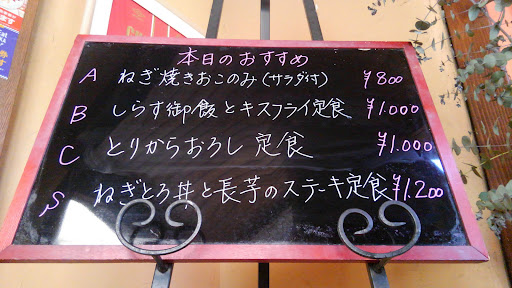 本日のおすすめ
A ねぎ焼きおこのみ(サラダ付) ¥800
B しらす御飯とキスフライ定食 ¥1.000
C とりからおろし 定食 ¥1.000
S ねぎとろ丼と長芋のステーキ定食 ¥1.200